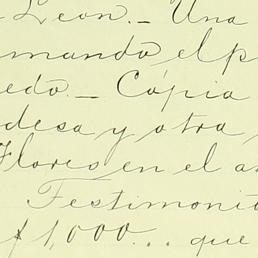 Leon._ Una
mando el p
edo._ Cópia
desa y otra
Flores en el a
Testimonio
$1,000... que